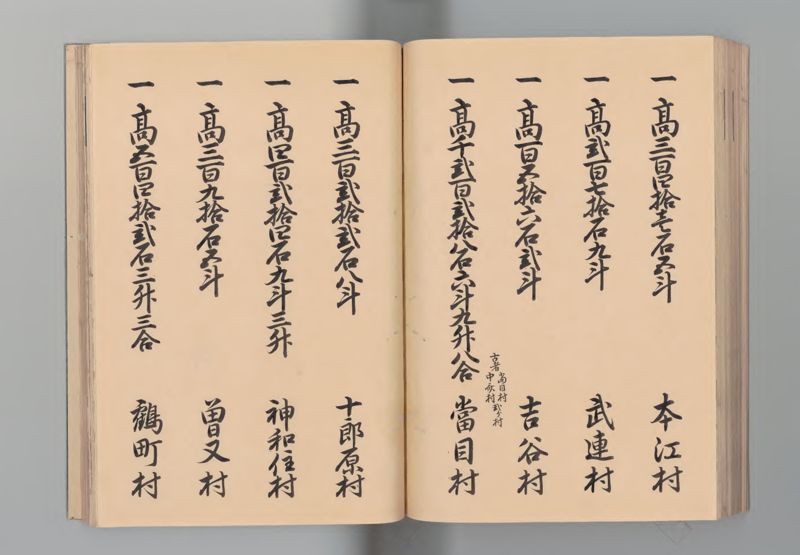 一 高三百四拾壱石五斗 本江村
一 高弐百七拾石九斗 武連村
一 高百五拾六石弐斗 吉谷村
古者當目村
中斉村弐ヶ村
一 高千弐百弐拾八石六斗九升八合 當目村
一 高三百弐拾弐石八斗 十郎原村
一 高四百弐拾四石九斗三升 神和住村
一 高三百九拾石五斗 曽又村
一 高五百四拾弐石三升三合 鶴町村